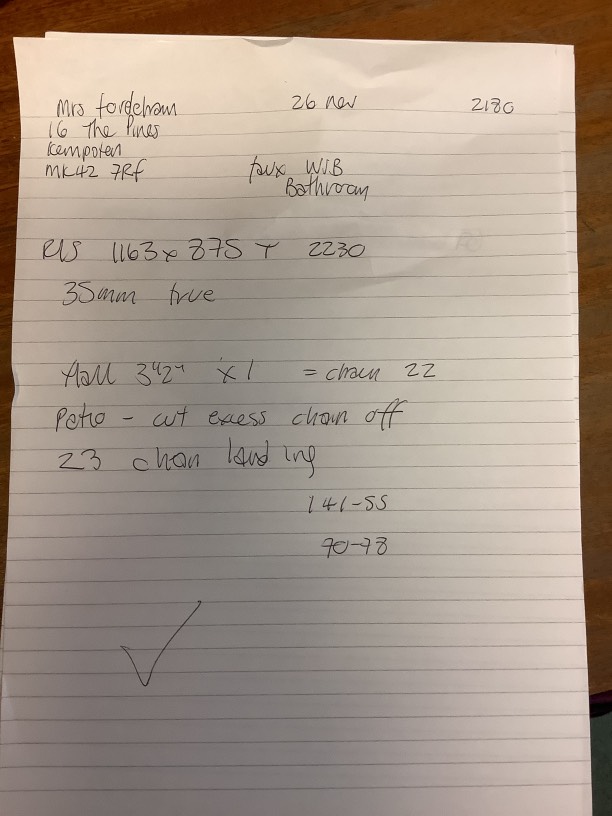 Mrs Fordeham 26 Nov 2180
16 The Pines
Kempsten
MK42 7RF faux W/B
Bathroom
R/S 1163 x 875 T 2230
35mm true
Hall 3"2" x 1 = chain 22
Patio - cut excess chain off
23 chan landing
141-55
70-78